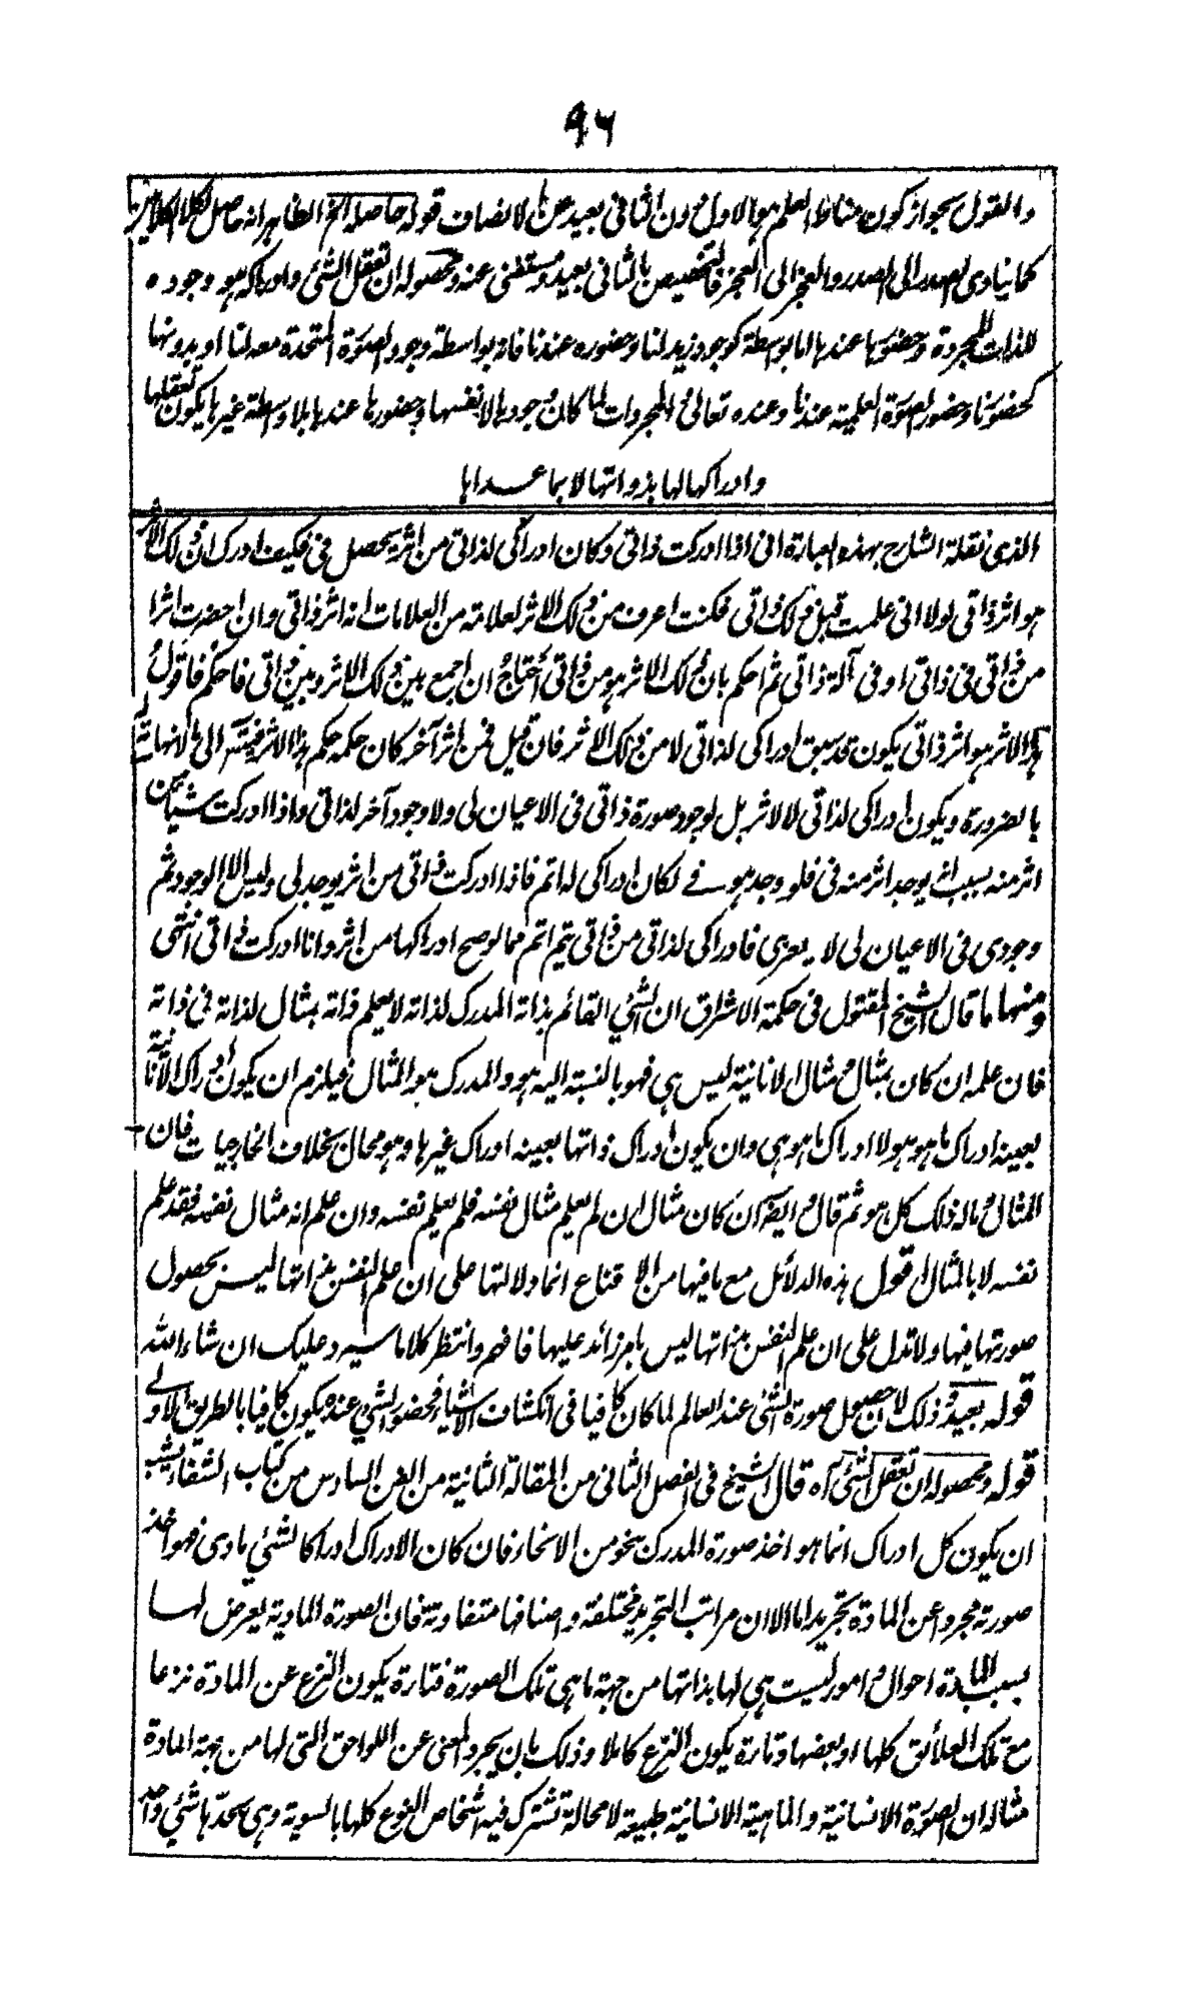 ٩٦
والقول بجواز كون مناط العلم هو الاول دون الثانى بعيد عن الانصاف قوله حاصله الخ الظاهر انه حاصل لكلا الكلامين
كما ينادى الصدر الى الصدر والعجز الى العجز فالتخصيص بالثانى بعيد ومستغنى عنه ومحصوله ان تعقل الشئ وادراكه هو وجوده
للذات المجردة وحضورها عندها اما بواسطة كوجود زيد لنا وحضوره عندنا فانه بواسطة وجود الصورة المتحدة معه لنا او بدونها
كحضورنا وحضور الصورة العلمية عندنا وعنده تعالى والمجردات لما كان وجودها لانفسها وحضورها عندها بلا واسطة غيرها يكون تعقلها
وادراكها لها بذواتها لا بما عداها
الذى نقله الشارح بهذه العبارة انى اذا ادركت ذاتى وكان ادراكى لذاتى من اثر يحصل فى فكيف ادرك ان ذلك الاثر
هو اثر ذاتى لولا انى علمت قبل ذلك ذاتى فكنت اعرف من ذلك الاثر لعلامة من العلامات انه اثر ذاتى وان احضرت اثرا
من ذاتى فى ذاتى او فى آلة ذاتى ثم احكم بان ذلك الاثر هو من ذاتى احتاج ان اجمع بين ذلك الاثر وبين ذاتى فاحكم فاقول
هذا الاثر هو اثر ذاتى يكون قد سبق ادراكى لذاتى لا من ذلك الاثر فان قيل فمن اثر آخر كان حكمه حكم هذا الاثر فيتسلسل الى ما لا نهاية له
بالضرورة ويكون ادراكى لذاتى لا لاثر بل لوجود صورة ذاتى فى الاعيان لى ولا وجود آخر لذاتى واذا ادركت شيئا من
اثر منه بسبب انه يوجد اثر منه فى فلو وجد هو فى لكان ادراكى له اتم فاذا ادركت ذاتى من اثر يوجد لى وليس الا الوجود ثم
وجودى فى الاعيان لى لا يعرى فادراكى لذاتى من ذاتى يتم اتم مما لو صح ادراكها من اثر وانا ادركت ذاتى انتهى
ومنها ما قال الشيخ المقتول فى حكمة الاشراق ان الشئ القائم بذاته المدرك لذاته لا يعلم ذاته بمثال لذاته فى ذاته
فان علمه ان كان بمثال ومثال الانانية ليس هى فهو بالنسبة اليه هو والمدرك هو المثال فيلزم ان يكون ادراك الانانية
بعينه ادراك ما هو هو لا ادراك ما هو هى وان يكون ادراك ذاتها بعينه ادراك غيرها وهو محال بخلاف الخارجيات فان
المثال وماله ذلك كل هو ثم قال وايضا ان كان مثال ان لم يعلم مثال نفسه فلم يعلم نفسه وان علم انه مثال نفسه فقد علم
نفسه لا بالمثال اقول هذه الدلائل مع ما فيها من الاقناع انما دلالتها على ان علم النفس بذاتها ليس بحصول
صورتها فيها ولا تدل على ان علم النفس بذاتها ليس بامر زائد عليها فافهم وانتظر كلاما سيرد عليك ان شاء الله
قوله بعيد وذلك لان حصول صورة الشئ عند العالم لما كان كافيا فى انكشاف الاشياء فحضور الشئ عنده يكون كافيا بالطريق الاولى
قوله ومحصوله ان تعقل الشئ آه قال الشيخ فى الفصل الثانى من المقالة الثانية من الفن السادس من كتاب الشفاء يشبه
ان يكون كل ادراك انما هو اخذ صورة المدرك بنحو من الانحاء فان كان الادراك ادراكا لشئ مادى فهو اخذ
صورته مجردا عن المادة تجريدا ما الا ان مراتب التجريد مختلفة واصنافها متفاوتة فان الصورة المادية يعرض لها
بسبب المادة احوال وامور ليست هى لها بذاتها من جهة ما هى تلك الصورة فتارة يكون النزع عن المادة نزعا
مع تلك العلائق كلها او بعضها وتارة يكون النزع كاملا وذلك بان يجرد المعنى عن اللواحق التى لها من جهة المادة
مثاله ان الصورة الانسانية والماهية الانسانية طبيعة لا محالة تشترك فيه اشخاص النوع كلها بالسوية وهى بحدها شئ واحد